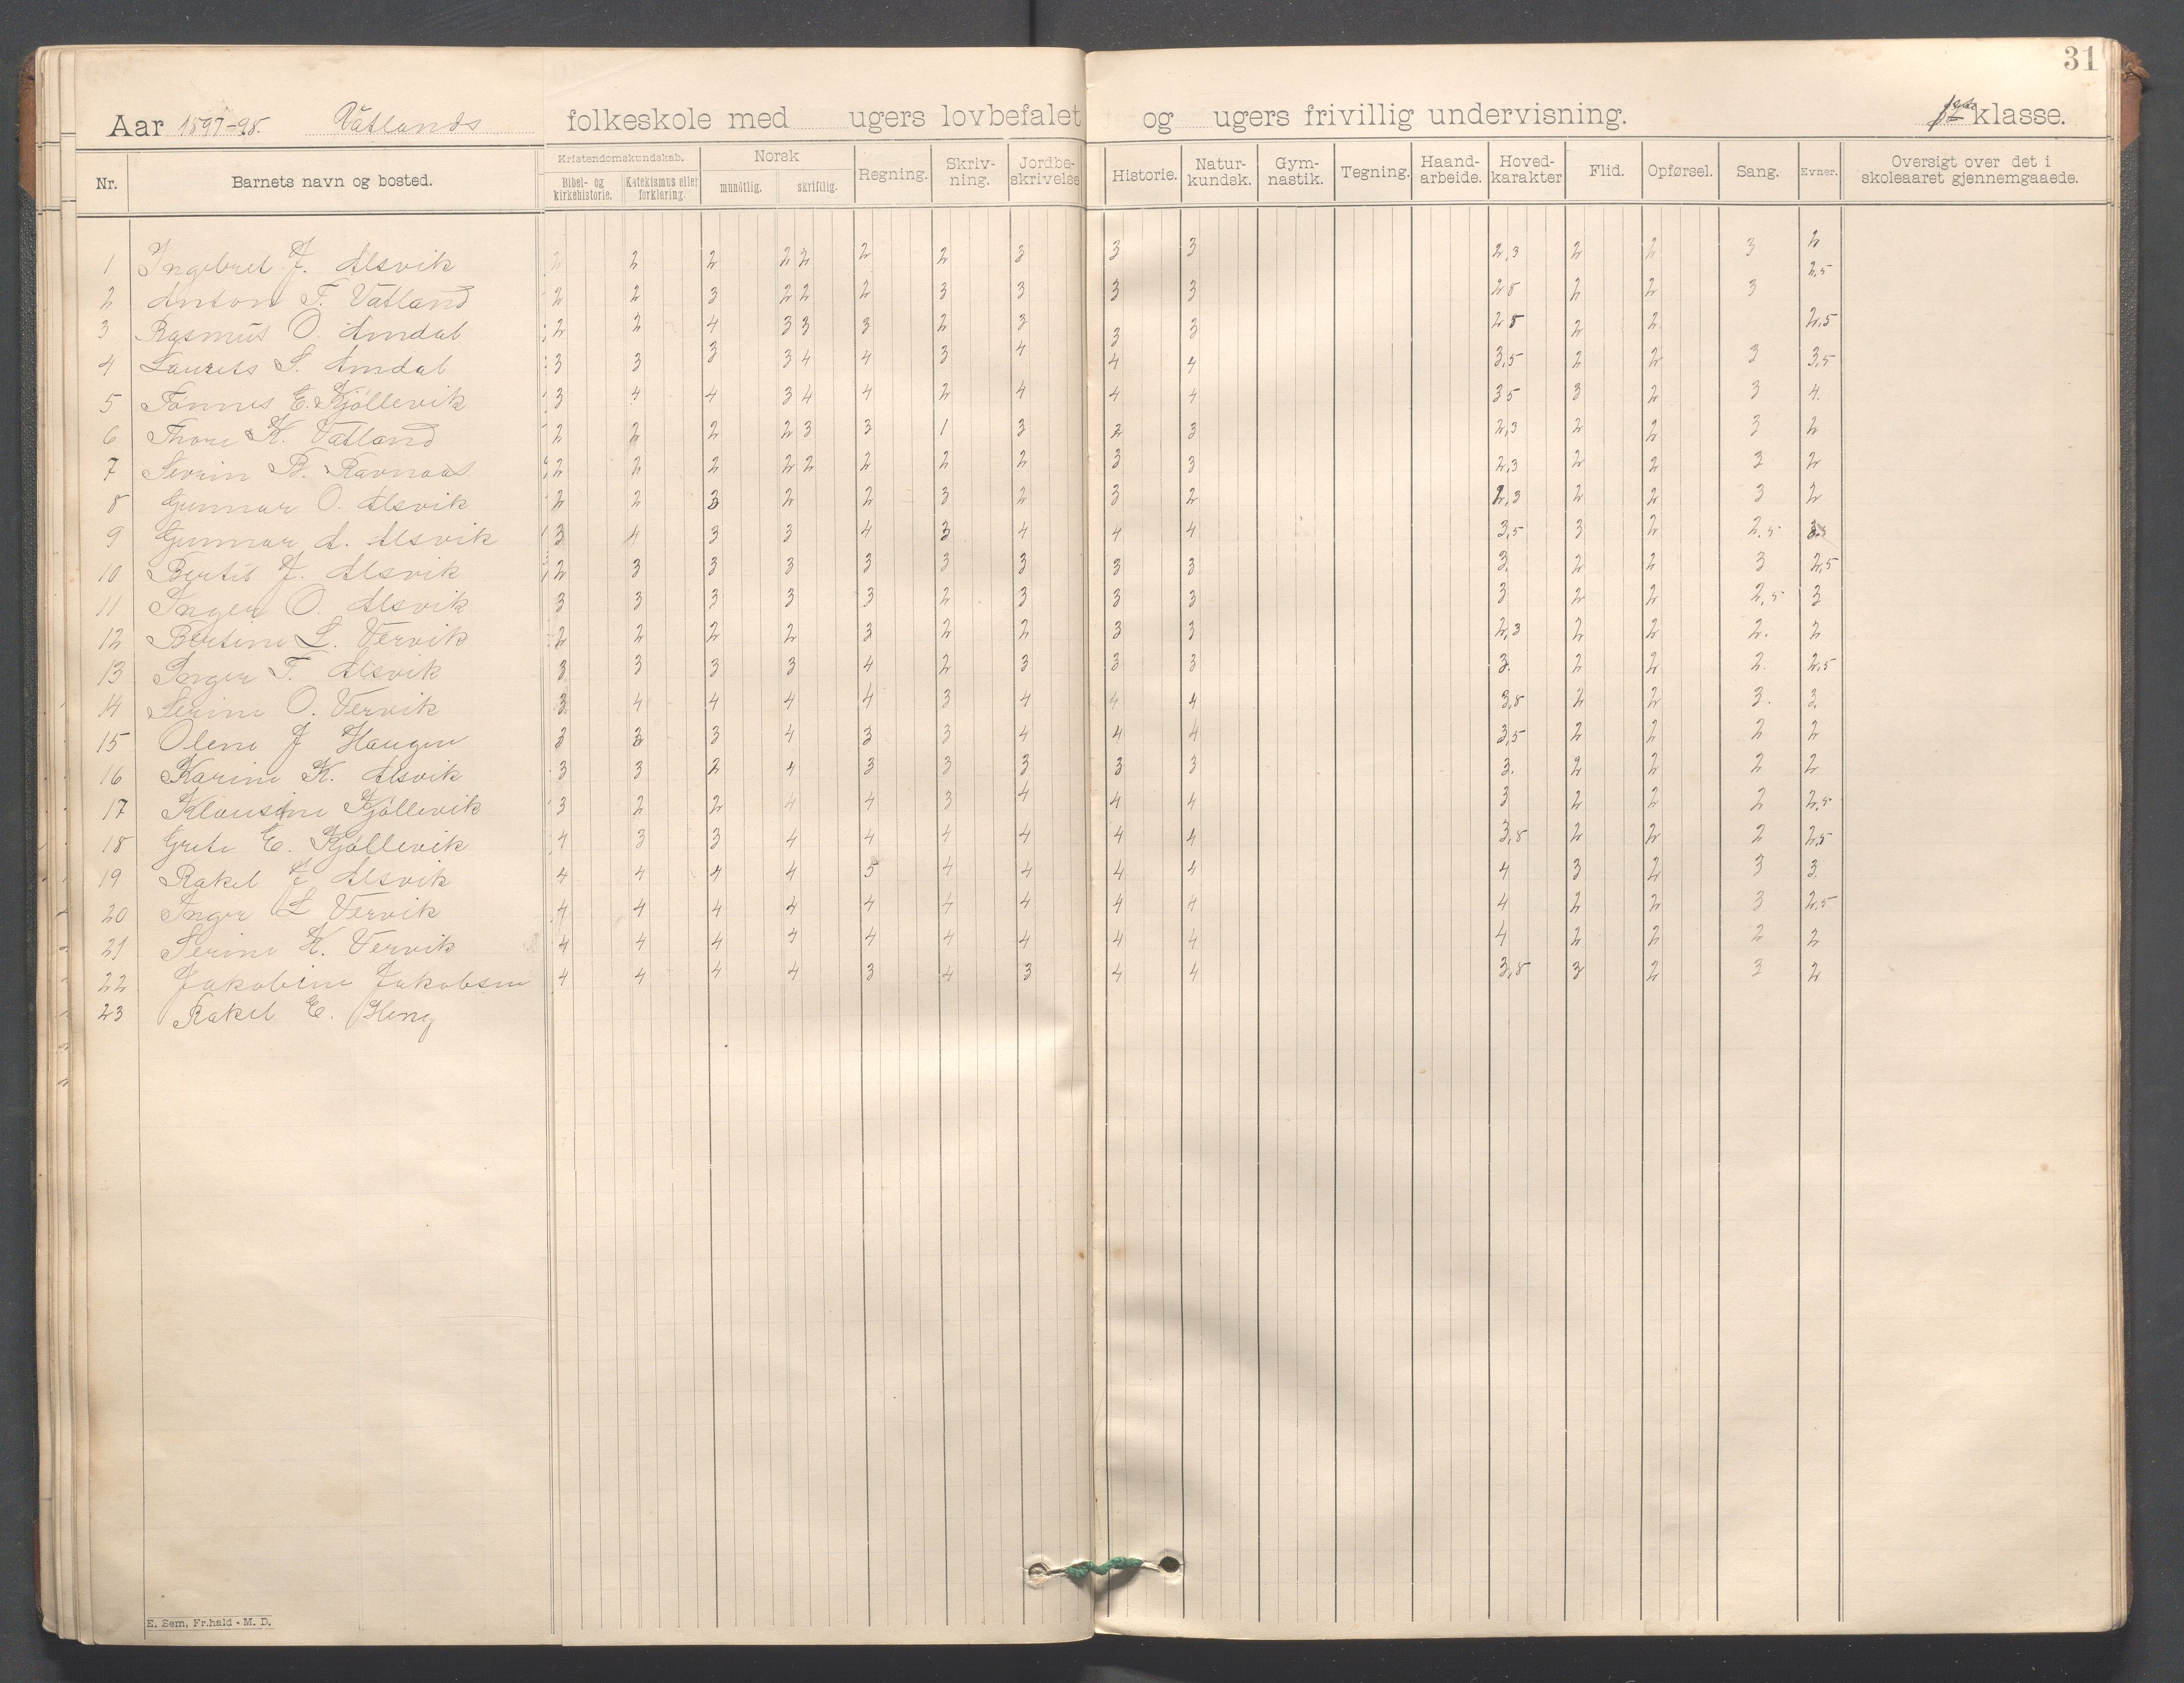 31
Aar 1897-98. Vatlands folkeskole med ugers lovbefalet og ugers frivillig undervisning. klasse.
Nr. Barnets navn og bosted. Kristendomskundskab. Bibel- og kirkehistorie. Katekismus eller forklaring. Norsk mundtlig. skriftlig. Regning. Skriv-ning. Jordbe-skrivelse Historie. Natur-kundsk. Gym-nastik. Tegning. Haand-arbeide. Hoved-karakter Flid. Opførsel. Sang. Evner. Oversigt over det i skoleaaret gjennemgaaede.
1 Ingebret J. Alsvik 2 2 2 2 2 2 2 3 3 3 2,3 2 2 3 2
2 Anton T. Vatland 2 2 3 2 2 2 3 3 3 3 2 8 2 2 3 2,5
3 Rasmus O. Amdal 2 2 4 3 3 3 2 3 3 3 2 8 2 2 2,5
4 Laurits S. Amdal 3 3 3 3 4 4 3 4 4 4 3,5 2 2 3 3,5
5 Tönnes E. Kjöllevik 3 4 4 3 4 4 2 4 4 4 3 5 3 2 3 4.
6 Thore K. Vatland 2 2 2 2 3 3 1 3 2 3 2,3 2 2 3 2
7 Sevrin B. Ravnaas 2 2 2 2 2 2 2 2 3 3 2,3 2 2 3 2
8 Gunnar O. Alsvik 2 2 3 2 2 3 2 3 2 2,3 2 2 3 2
9 Gunnar A. Alsvik 3 4 3 3 4 3 4 4 4 3,5 3 2 2,5
10 Bertil J. Alsvik 2 3 3 3 3 3 3 3 3 3. 2 2 3 2,5
11 Inger O. Alsvik 3 3 3 3 3 2 3 3 3 3 2 2 2,5 3
12 Bertine L. Vervik 2 2 2 2 3 2 2 3 3 2,3 2 2 2. 2
13 Inger T. Alsvik 3 3 3 3 4 2 3 3 3 3. 2 2 2. 2,5
14 Serine O. Vervik 3 4 4 4 4 3 4 4 4 3,8 2 2 3. 3.
15 Olene J Haugen 3 3 3 4 3 3 4 4 4 3,5 2 2 2 2
16 Karine K. Alsvik 3 3 2 4 3 3 3 3 3 3. 2 2 2 2
17 Klausine Kjöllevik 3 2 2 4 4 3 4 4 4 3 2 2 2 2,5
18 Grete E. Kjöllevik 4 3 3 4 4 4 4 4 4 3,8 2 2 2 2,5
19 Rakel J Alsvik 4 4 4 4 5 4 4 4 4 4 3 2 3 3.
20 Inger L Vervik 4 4 4 4 4 4 4 4 4 4 2 2 3 2,5
21 Serine K. Vervik 4 4 4 4 4 4 4 4 4 4 2 2 2 2
22 Jakobine Jakobsen 4 4 4 4 3 4 3 4 4 3,8 3 2 3 2
23 Rakel E.
E. Sem, Fr.hald - M. D.